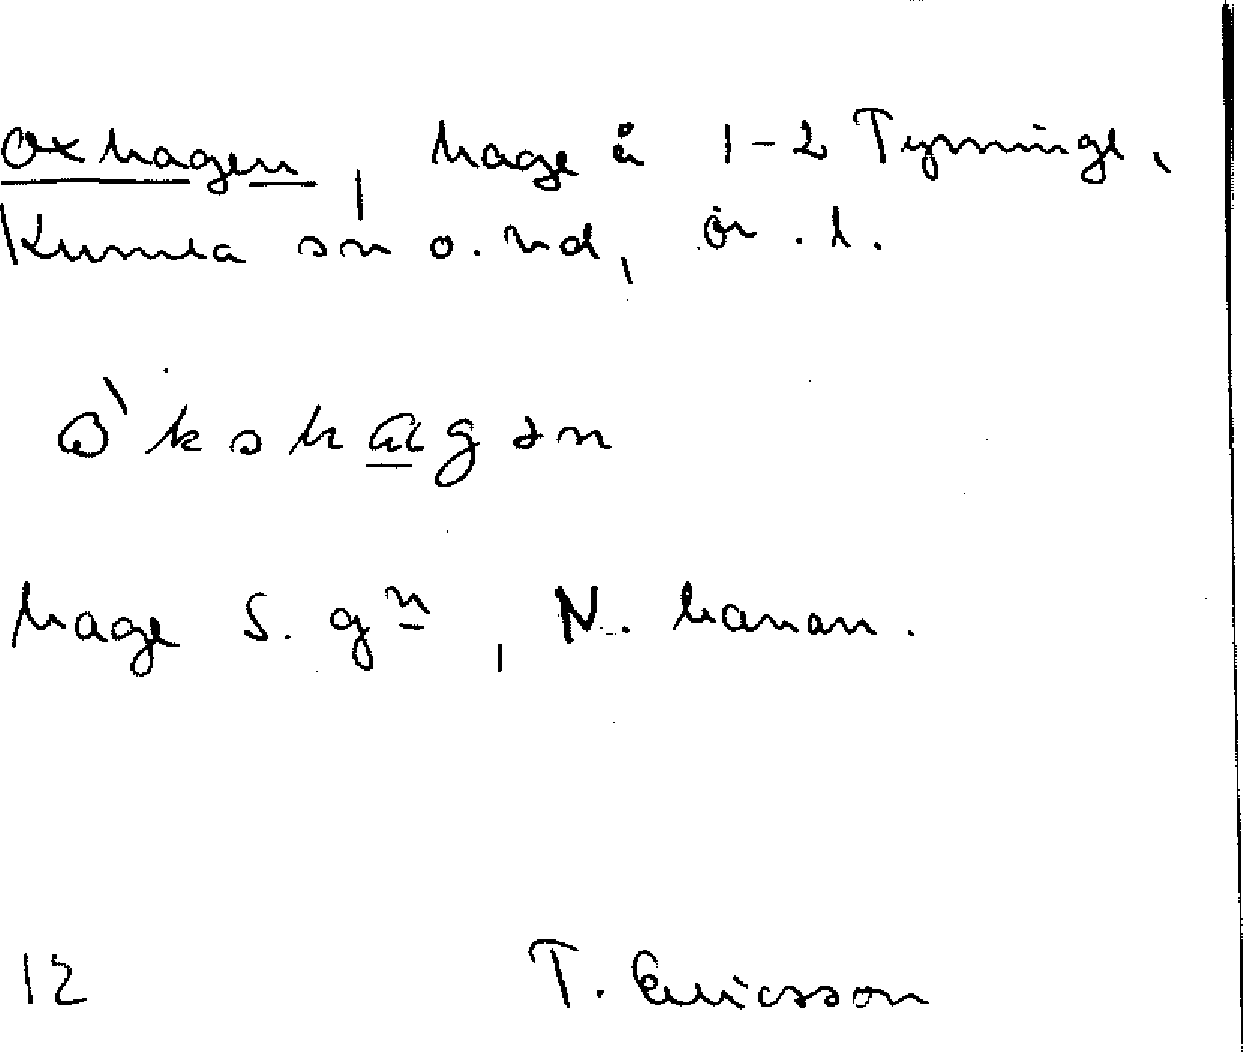 Oxhagen, hage å 1-2 Tynninge,
Kumla sn o. hd, ör. l.
hage S. gn, N. kanan.
12 T. Ericsson